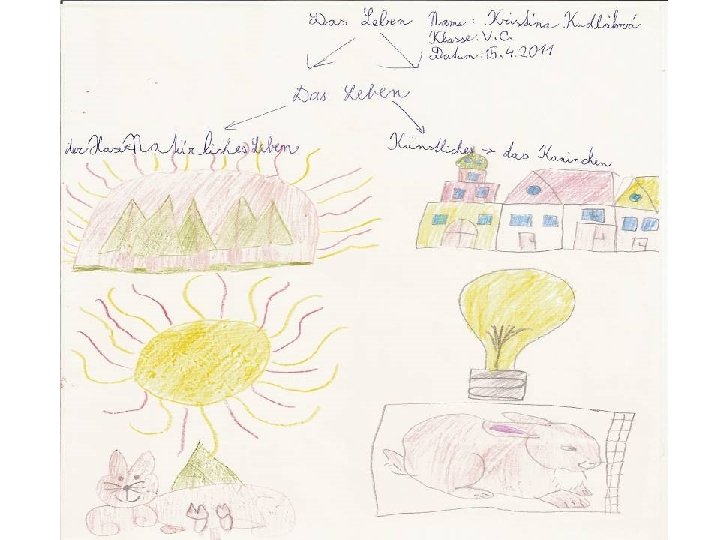 Das Leben
Name: Kristína Kudlíková
Klasse: V.C
Datum: 15.4.2011
Das Leben
der Hase Natürliches Leben
Künstliches → das Kaninchen